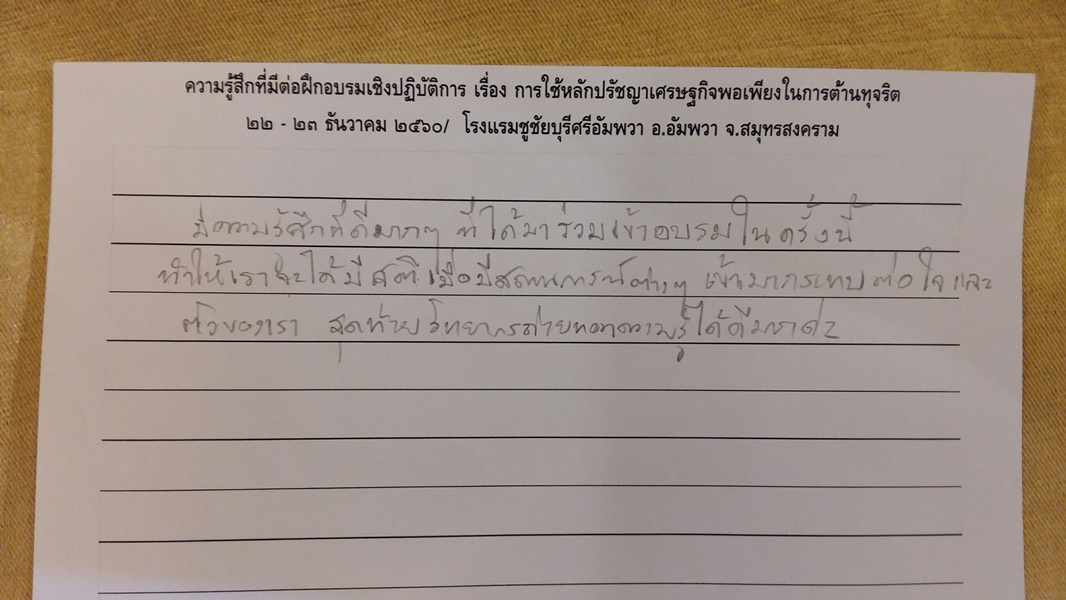 ความรู้สึกที่มีต่อฝึกอบรมเชิงปฏิบัติการ เรื่อง การใช้หลักปรัชญาเศรษฐกิจพอเพียงในการต้านทุจริต
๒๒ - ๒๓ ธันวาคม ๒๕๖๐/ โรงแรมชูชัยบุรีศรีอัมพวา อ.อัมพวา จ.สมุทรสงคราม
มีความรู้สึกที่ดีมากๆ ที่ได้มาร่วมเข้าอบรมในครั้งนี้
ทำให้เราจะได้มีสติ เมื่อมีสถานการณ์ต่างๆ เข้ามากระทบต่อใจและ
ตัวของเรา สุดท้ายวิทยากรถ่ายทอดความรู้ได้ดีมากค่ะ